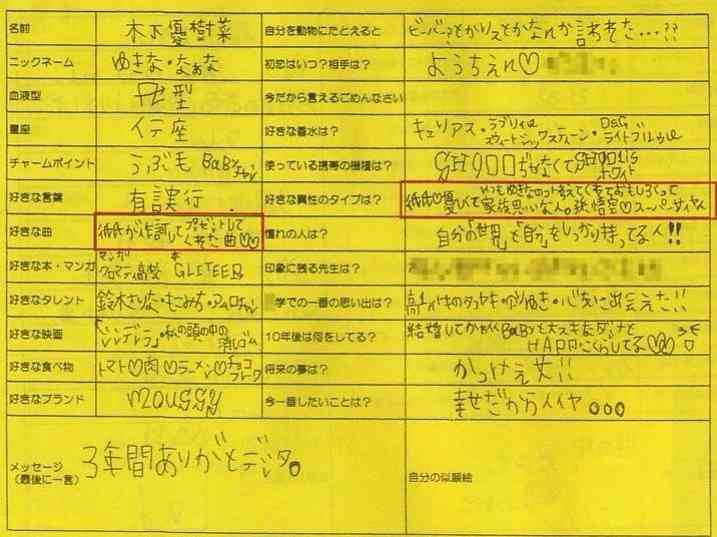 名前 木下優樹菜 自分を動物にたとえると ビーバー?とかリスとかなれか言われた…??
ニックネーム ゆきな・なぁな 初恋はいつ?相手は? ようちえん♡
血液型 型 今だから言えるごめんなさい
星座 イテ座 好きな香水は? キュリアス・ラブリィ
チャームポイント うぶ毛 BaByチャン 使っている携帯の機種は? SH900iぢゃなくてSH901iS ホワイト
好きな言葉 有言実行 好きな異性のタイプは? いつもゆきなのコト考えてくれておもしろくって
優しくて家族思いな人。孫悟空♡スーパーサイヤ人
好きな曲 が作詞してプレゼントして
くれた曲♡♡ 憧れの人は? 自分の「世界」と「自分」をしっかり持ってる人!!
好きな本・マンガ マンガ クロマティ高校 本 GLITEER 印象に残る先生は?
好きなタレント 鈴木えりな・もこみち・アムロチャン 学での一番の思い出は?
好きな映画 「シンデレラ」・私の頭の中の
消しゴム 10年後は何をしてる? 結婚してかわいいBaByと大スキなダンナと
HAPPにくらしてる♡♡
好きな食べ物 トマト♡肉♡ラーメン♡チョコ
フレーク 将来の夢は? かっけぇ女!!
好きなブランド mouggy 今一番したいことは? 幸せだからイイヤ。。。
メッセージ
(最後に一言) 3年間ありがとデシタ。 自分の似顔絵